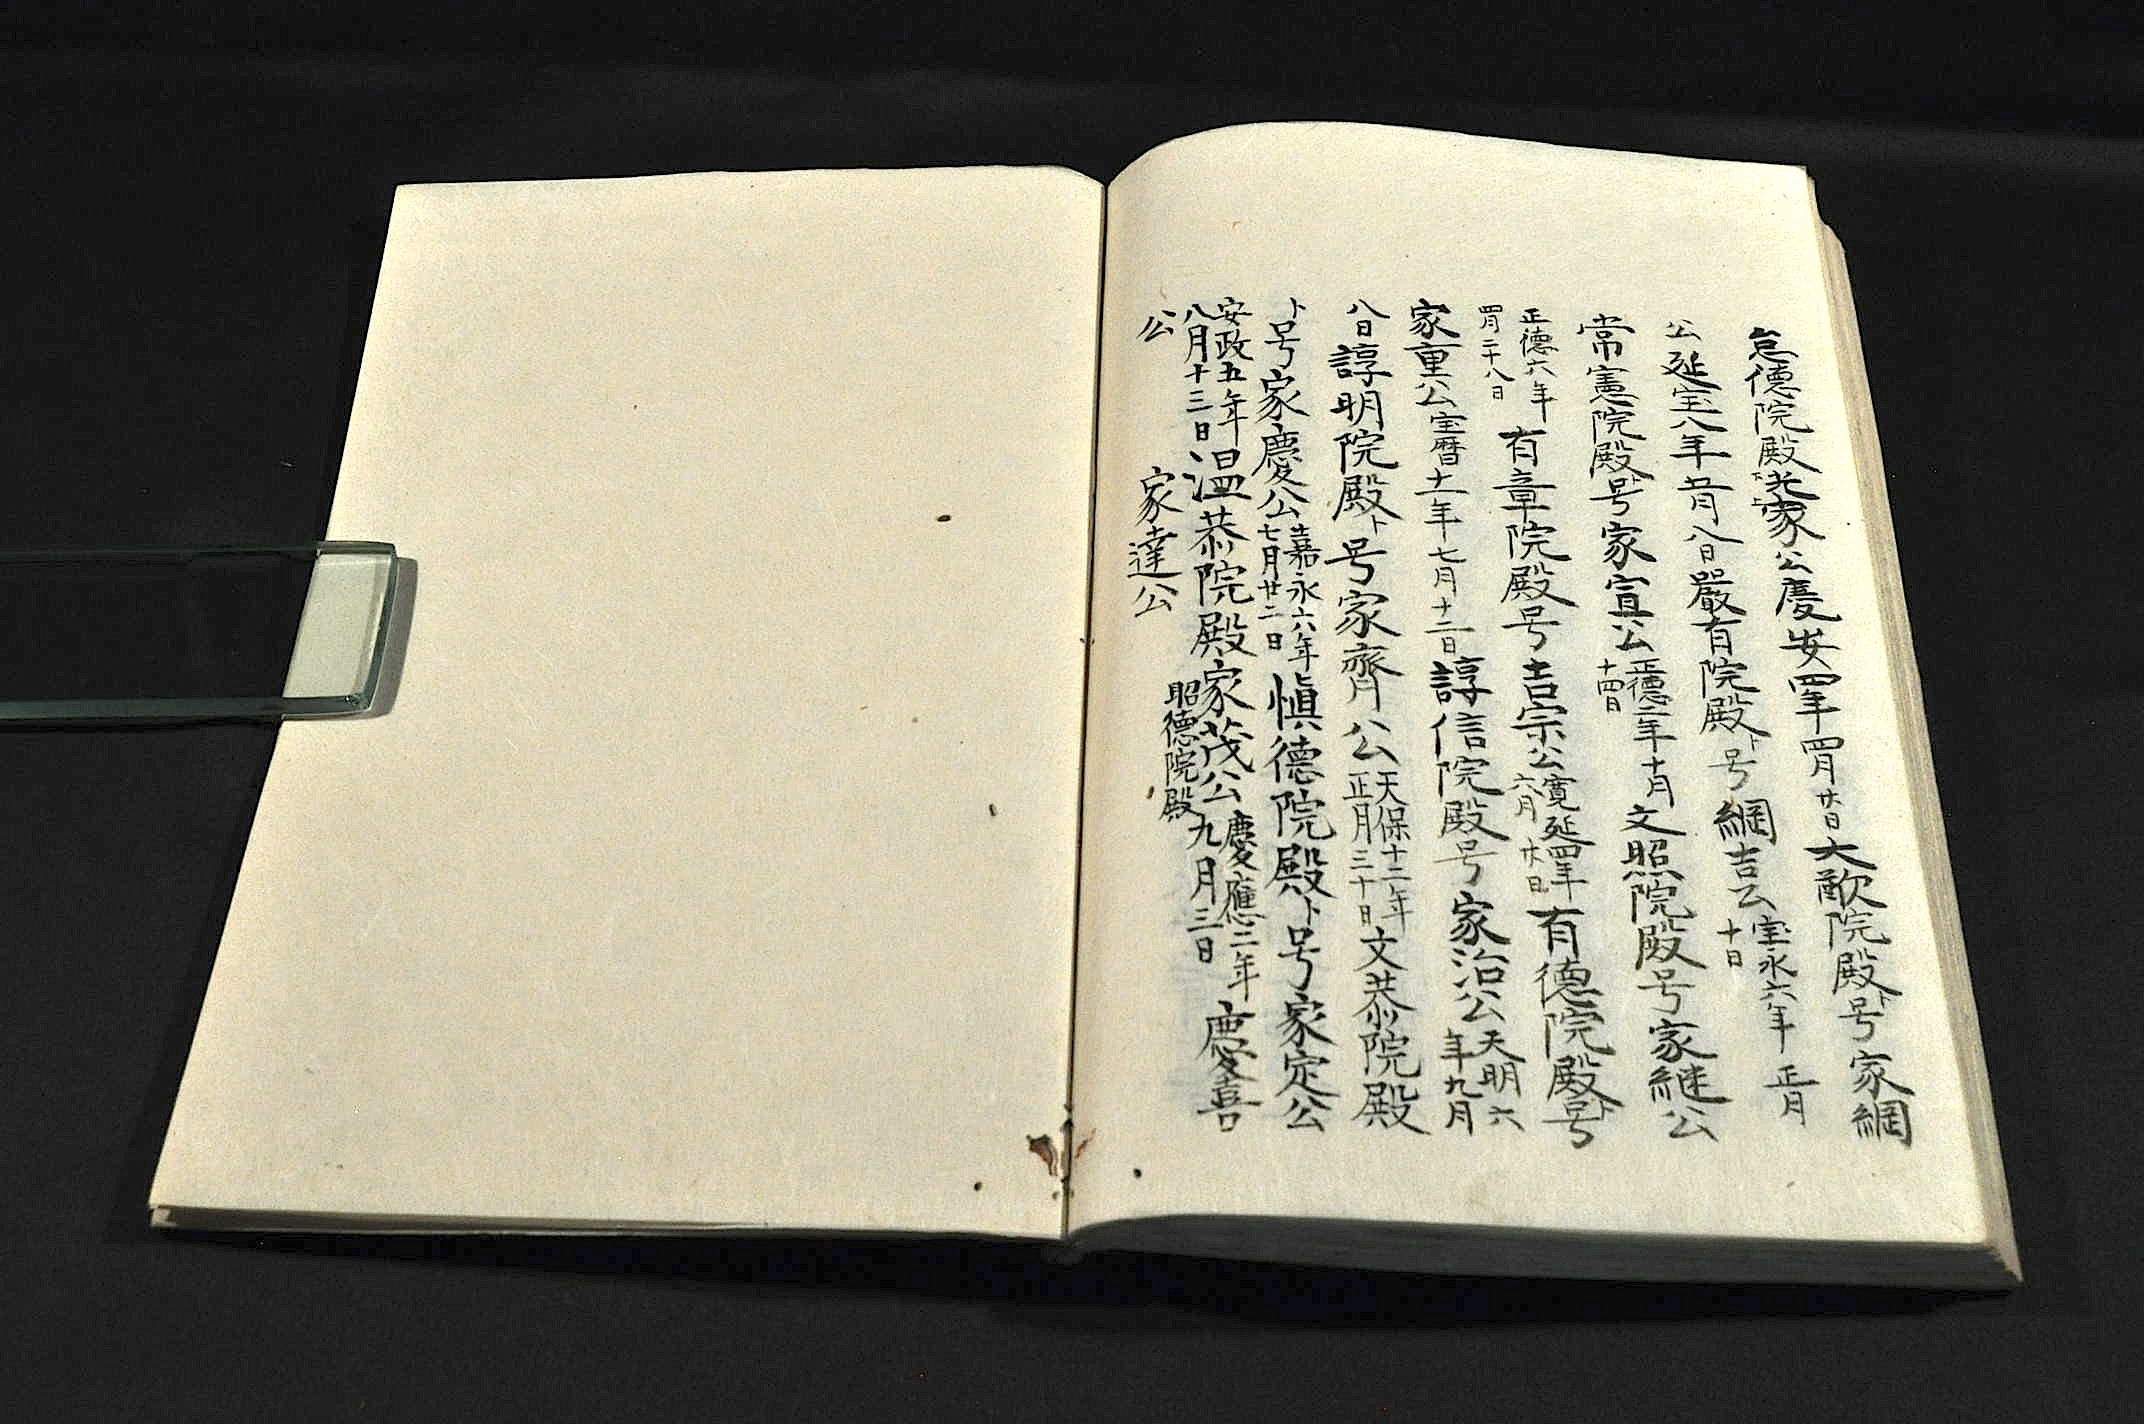 怠德院殿光家公慶安四年四月廿日大猷院殿ト号家綱
公延宝八年五月八日嚴有院殿ト号綱吉公宝永六年正月十日
常憲院殿ト号家宣公正德二年十月十四日文照院殿号家継公
正德六年四月二十八日有章院殿号吉宗公寛延四年六月廿日有德院殿ト号
家重公宝暦十一年七月十二日諄信院殿号家治公天明六年九月
八日諄明院殿ト号家齊公天保十二年正月三十日文恭院殿
ト号家慶公嘉永六年七月廿二日愼德院殿ト号家定公
安政五年八月十三日温恭院殿家茂公慶應二年九月三日昭德院殿慶喜
公 家達公